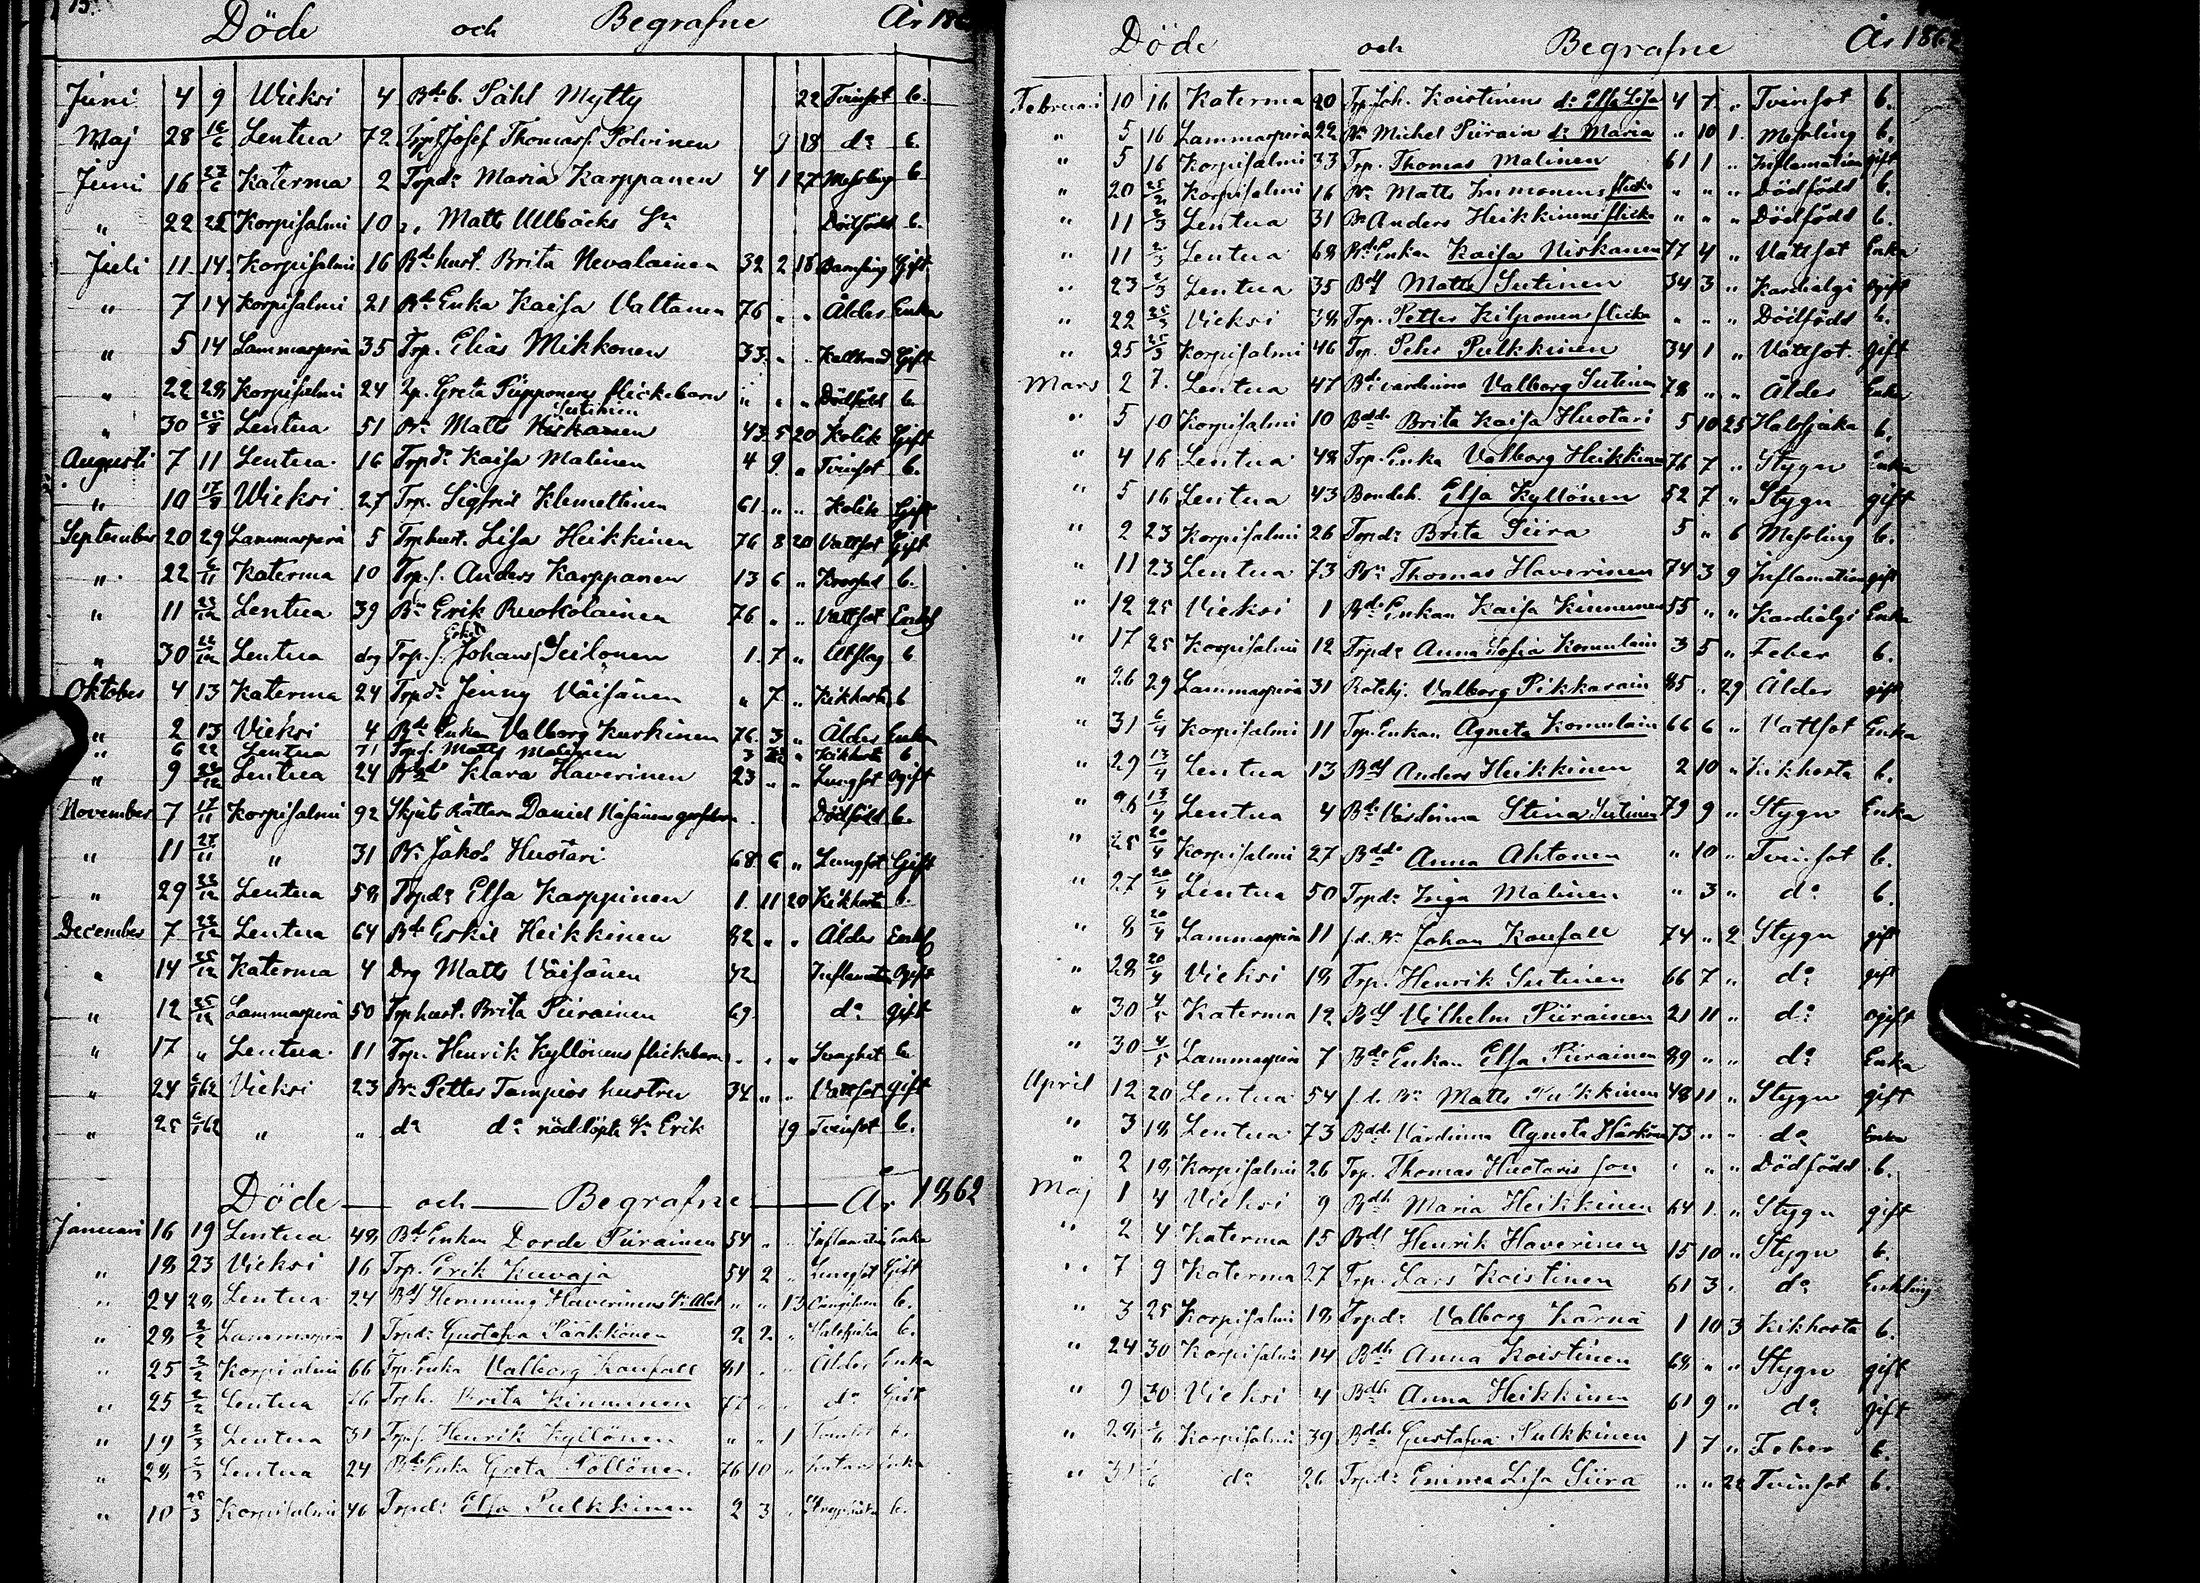 Döde och Begrafne År 186
Juni 4 9 Wieksi 4 Bd. b. Påhl Mytty 22 Tvinsot b.
Maj 28 16/6 Lentua 72 Josef Thomass. Polvinen 9 18 do b.
Juni 16 23/6 Katerma 2 Trpdr Maria Karppanen 4 1 27 Messling b
" 22 25 Korpisalmi 10 Matts Ullbäcks Sn Dödfödd b.
Juli 11 14 Korpisalmi 16 Bde hust. Brita Nevalainen 32 2 18 Barnsäng Gift
" 7 14 Korpisalmi 21 Bde Enka Kaisa Valtanen 76 " " Ålder Enka
" 5 14 Lammasperä 35 Trp. Elias Mikkonen 33 " " Kallbrand Gift
" 22 28 Korpisalmi 24 Greta Piipponens flickebarn " " " Dödfödd b.
" 30 Lentua 51 Bn Matts Niskanen Sutinen 43 5 20 Kolik Gift
Augusti 7 11 Lentua 16 Trpdr Kaisa Malinen 4 9 " Tvinsot b.
" 10 17/8 Wieksi 27 Trp. Sigfrid Klemettinen 61 " " Kolik Gift
September 20 29 Lammasperä 5 Trp hust. Lisa Heikkinen 76 8 20 Vattsot Gift
" 22 6/11 Katerma 10 Trp.s. Anders Karppanen 13 6 " b.
" 11 23/12 Lentua 39 Bn Erik Ruokolainen 76 " " Vattsot Enkl
" 30 22/12 Lentua drg Trp.s. Johan Eskil Seilonen 1 7 " Utslag b
Oktober 4 13 Katerma 24 Trpdr Jenny Väisänen " 7 " Kikhosta b
" 2 13 Vieksi 4 Bde Enkan Valborg Kurkinen 76 3 " Ålder Enka
" 6 22 Lentua 71 Trps. Matts Malinen 3 " Kikhosta b
" 9 Lentua 24 Klara Haverinen 23 " " Lungsot Ogift
November 7 17/11 Korpisalmi 92 Skjuts Rättarn Daniel Dödfödd b.
" 11 27/11 " 31 Bn Jakob Huotari 68 6 " Lungsot Gift
" 29 23/12 Lentua 58 Trpdr Elsa Karppinen 1 11 20 Kikhosta b.
December 7 23/12 Lentua 64 Bde Eskil Heikkinen 82 " " Ålder Enkl
" 14 25/12 Katerma 4 Drg Matts Väisänen 42 Inflamation Ogift
" 12 25/12 Lammasperä 50 Trp hust. Brita Piirainen 69 do gift
" 17 " Lentua 11 Trp. Henrik Kyllönens flickebarn " " " Svaghet b.
" 24 6/1 62 Vieksi 23 Bn Petter Tampios hustru 34 " " Vattsot gift
" 25 6/1 62 " " do do nöddöpte Sn Erik 19 Tvinsot b.
Döde och Begrafne År 1862
Januari 16 19 Lentua 48 Bd Enkan Dorde Piirainen 54 " " Inflamation Enka
" 18 23 Vieksi 16 Trp. Erik Kuvaja 54 2 " Lungsot Gift
" 24 28 Lentua 24 Bd Hemming Haverinens Sn Abel " " 13 b.
" 28 2/2 Lammasperä 1 Trpdr Gustafva Pääkkönen 2 2 " Halssjuka b.
" 25 2/2 Korpisalmi 66 Trp. Enka Valborg Kaufall 81 " " Ålder Enka
" 25 2/2 Lentua Trph. Brita Kinnunen do Gift
" 19 2/3 Lentua 31 Trps. Henrik Kyllönen " " 1 Tvinsot b.
" 28 2/3 Lentua 24 Bde Enka Greta Pöllönen 76 10 " Enka
" 10 25/3 Korpisalmi 46 Trpdr Elsa Pulkkinen 2 3 " b.
Döde och Begrafne År 1862
Februari 10 16 Katerma 20 Trp. Joh. Koistinens dr Elsa Lisa 4 7 " Tvinsot b.
" 5 16 Lammasperä 22 Bn Michel Piirain dr Maria " 10 1 Messling b.
" 5 16 Korpisalmi 33 Trp. Thomas Malinen 61 1 " Inflamation gift
" 20 25/2 Korpisalmi 16 Bn Matts Immonens flicka " " " Dödfödd b.
" 11 2/3 Lentua 31 Bn Anders Heikkinens flicka " " " Dödfödd b.
" 11 2/3 Lentua 68 Bd Enkan Kaisa Niskanen 77 4 " Vattsot Enka
" 23 2/3 Lentua 35 Bds Matts Sutinen 34 3 " Kardialgi ogift
" 22 25/3 Vieksi 38 Trp. Petter Kilponens flicka " " " Dödfödd b.
" 25 25/3 Korpisalmi 46 Trp. Peter Pulkkinen 34 1 " Vattsot gift
Mars 2 7 Lentua 47 Bd. värdinna Valborg Sutinen 78 " " Ålder Enka
" 5 10 Korpisalmi 10 Bddr Brita Kaisa Huotari 5 10 25 Halssjuka b.
" 4 16 Lentua 48 Trp. Enka Valborg Heikkinen 76 7 " Stygn Enka
" 5 16 Lentua 43 Bondeh. Elsa Kyllönen 52 7 " Stygn gift
" 2 23 Korpisalmi 26 Trpdr Brita Siira 5 " 6 Messling b.
" 11 23 Lentua 73 Bn Thomas Haverinen 74 3 9 Inflamation gift
" 12 25 Vieksi 1 Bde Enkan Kaisa Kinnunen 55 " " Kardialgi Enka
" 17 25 Korpisalmi 12 Trpdr Anna Sofia Komulain 3 5 " Feber b.
" 26 29 Lammasperä 31 Rotehj. Valborg Pikkarain 85 " 29 Ålder gift
" 31 6/4 Korpisalmi 11 Trp. Enkan Agneta Komulain 66 6 " Vattsot Enka
" 29 13/4 Lentua 13 Bds Anders Heikkinen 2 10 " Kikhosta b.
" 26 13/4 Lentua 4 Bde Värdinna Stina Sutinen 79 9 " Stygn Enka
" 25 20/4 Korpisalmi 27 Bddr Anna Ahtonen " 10 " Tvinsot b.
" 27 20/4 Lentua 50 Trpdr Inga Malinen " 3 " do b.
" 8 20/4 Lammasperä 11 f.d. Bn Johan Kaufall 74 " 2 Stygn gift
" 28 20/4 Vieksi 18 Trp. Henrik Sutinen 66 7 " do gift
" 30 4/5 Katerma 12 Bds Vilhelm Piirainen 21 11 " do ogift
" 30 4/5 Lammasperä 7 Bde Enkan Elsa Piirainen 89 " " do Enka
April 12 20 Lentua 54 f.d. Bn Matts 48 11 " Stygn gift
" 3 18 Lentua 73 Bdd. Värdinna Agneta Härkön 73 " " do Enka
" 2 18 Korpisalmi 26 Trp. Thomas Huotaris son " " " Dödfödd b.
Maj 1 4 Vieksi 9 Bdh Maria Heikkinen 64 1 " Stygn gift
" 2 4 Katerma 15 Bds Henrik Haverinen 15 10 " Stygn b.
" 7 9 Katerma 27 Trp. Lars Koistinen 61 3 " do Enkling
" 3 25 Korpisalmi 18 Trpdr Valborg Kärnä 1 10 3 Kikhosta b.
" 24 30 Korpisalmi 14 Bdh Anna Koistinen 68 " " Stygn gift
" 9 30 Vieksi 4 Bdh Anna Heikkinen 61 9 " do gift
" 28 1/6 Korpisalmi 39 Bddr Gustafva Pulkkinen 1 7 " Feber b.
" 31 1/6 do 26 Trpdr Emma Lisa Siira " " 22 Tvinsot b.